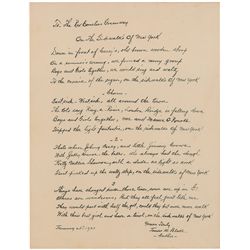 To The
On The Sidewalks Of New York
Down in front of Casey's, old brown wooden stoop
On a summer's evening, we formed a merry group
Boys and Girls together, we would sing and waltz
To the music of the organ, on the sidewalks Of New York
Chorus
East side, West side, all around the town,
The tots sang Ring a Rosie, London Bridge is falling down
Boys and Girls together, me and Mamie O Rorke
Tripped the light fantastic, on the sidewalks of New York
2
That's where Johnny Casey, and little Jimmy Crowe
With Jakey Krause the baker, who always had the dough
Pretty Nellie Shannon, with a dude as light as cork
First picked up the waltz step, on the sidewalks of New York
3
Things have changed since those times, some are up in G
Others are wanderers, but they all feel just like me
They would part with all they got, could they but once more walk
With their best girl, and have a twirl, on the sidewalks of New York
James W. Blake
Author